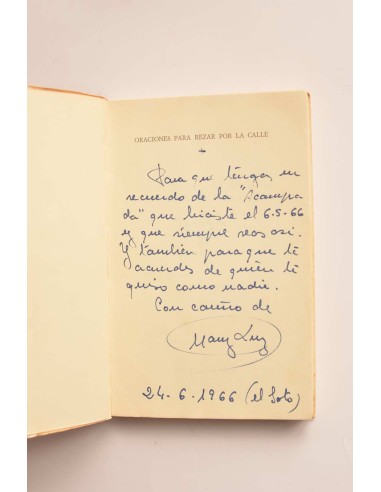 ORACIONES PARA REZAR POR LA CALLE
Para que tengas un
recuerdo de la "Acampa
da" que hiciste el 6-5-66
y que siempre seas así.
Y también para que te
acuerdes de quién te
quiso como nadie.
Con cariño de
Mary Luz
24-6-1966 (el Soto)